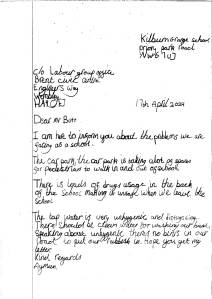 Kilburn Grange school
Priory park road
NW6 7UJ
c/o Labour group office
Brent civic centre
Engineers way
Wembley
HA9 0FJ
17th April 2024
Dear Mr Butt
I am here to inform you about the problems we are
facing as a school.
The car park, the car park is taking alot of space
for pedestrians to walk in and out of school
There is loads of drugs usage in the back
of the school making it unsafe when we leave the
school
The tap water is very unhygenic and disgusting
There should be clean water for washing our hands
Speaking about unhygenic there's no bins in our
to put our rubbish in. Hope you get my
letter
Kind regards
Ayman